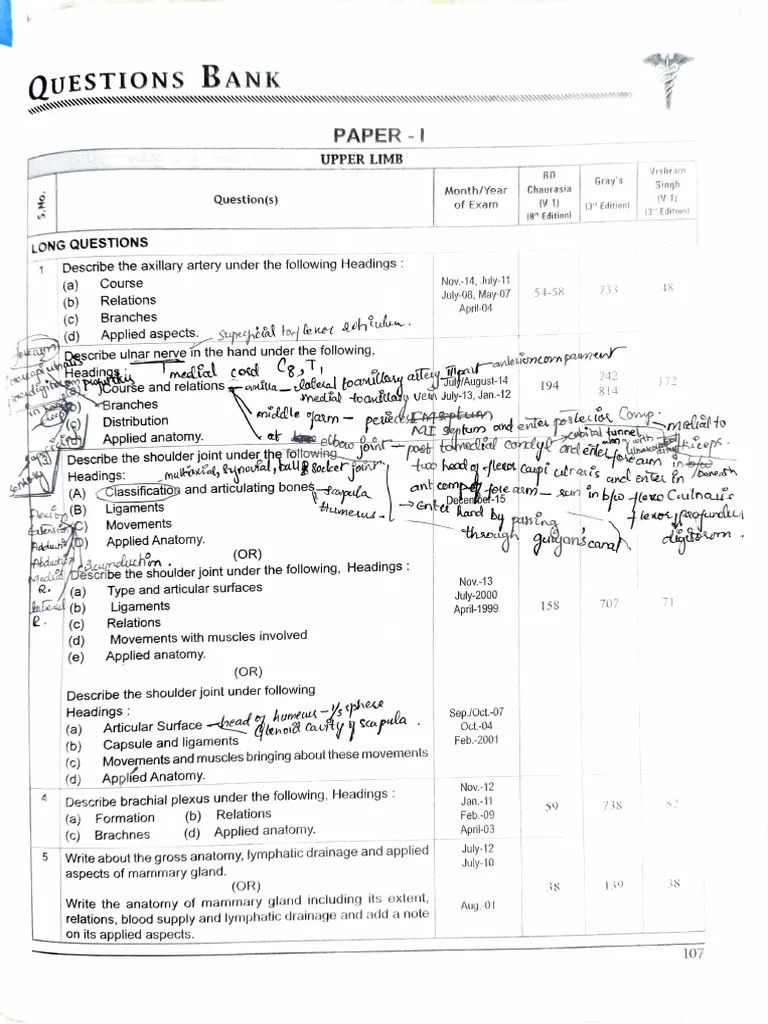 QUESTIONS BANK
PAPER - I
UPPER LIMB
S.No.
Question(s)
Month/Year of Exam
BD Chaurasia (V-1) (8th Edition)
Gray's (3rd Edition)
Vishram Singh (V-1) (3rd Edition)
LONG QUESTIONS
1 Describe the axillary artery under the following Headings :
(a) Course
(b) Relations
(c) Branches
(d) Applied aspects.
Nov.-14, July-11
July-08, May-07
April-04
54-58 733 48
superficial to flexor
Describe ulnar nerve in the hand under the following,
Headings :
medial cord C8, T1
Course and relations
Branches
(c) Distribution
Applied anatomy.
July/August-14
July-13, Jan.-12
194 742 814 172
axilla - lateral to axillary artery III part anterior compartment
medial to axillary vein
middle of arm -
MI septum and enter posterior Comp.
medial to
at elbow joint - post to medial condyl and enter forearm in
cubital tunnel
beneath
two head of flexor carpi ulnaris and enter in
ant comp of forearm - run in b/w flexo C. ulnaris
flexor profundus
digitorom.
enter hand by passing
through guiyon's canal
Describe the shoulder joint under the following
Headings:
multiaxial, synovial, ball & socket joint
(A) Classification and articulating bones
scapula
humerus
(B) Ligaments
(C) Movements
(D) Applied Anatomy.
December-15
Flexion
Extension
Adduction
Abduction
Medial R.
lateral R.
(OR)
Describe the shoulder joint under the following, Headings :
(a) Type and articular surfaces
(b) Ligaments
(c) Relations
(d) Movements with muscles involved
(e) Applied anatomy.
Nov.-13
July-2000
April-1999
158 707 71
(OR)
Describe the shoulder joint under following
Headings :
(a) Articular Surface
head of humerus - 1/3 sphere
Glenoid cavity of scapula.
(b) Capsule and ligaments
(c) Movements and muscles bringing about these movements
(d) Applied Anatomy.
Sep./Oct.-07
Oct.-04
Feb.-2001
4 Describe brachial plexus under the following, Headings :
(a) Formation (b) Relations
(c) Brachnes (d) Applied anatomy.
Nov.-12
Jan.-11
Feb.-09
April-03
59 738 52
5 Write about the gross anatomy, lymphatic drainage and applied
aspects of mammary gland.
July-12
July-10
(OR)
38 139 38
Write the anatomy of mammary gland including its extent,
relations, blood supply and lymphatic drainage and add a note
on its applied aspects.
Aug.-01
107